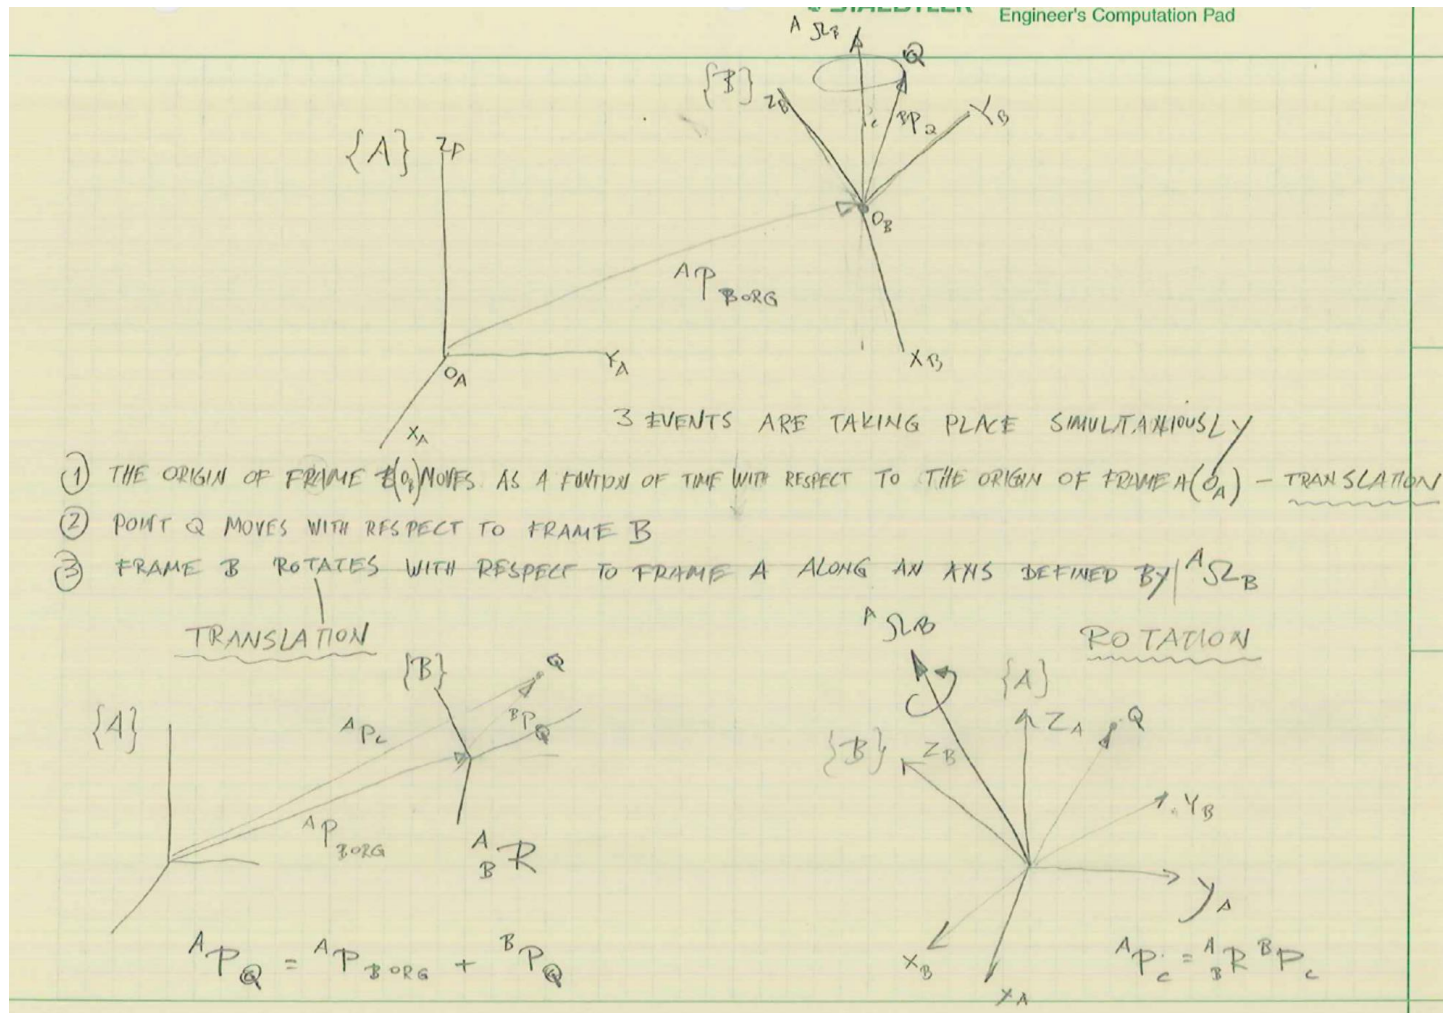 STAEDTLER
Engineer's Computation Pad
A Ω B
Q
{B}
Z B
B P Q
Y B
{A}
Z A
O B
A P BORG
Y A
O A
X B
X A
3 EVENTS ARE TAKING PLACE SIMULTANIOUSLY
① THE ORIGIN OF FRAME B(O B) MOVES AS A FUNTION OF TIME WITH RESPECT TO THE ORIGIN OF FRAME A(O A) – TRANSLATION
② POINT Q MOVES WITH RESPECT TO FRAME B
③ FRAME B ROTATES WITH RESPECT TO FRAME A ALONG AN AXIS DEFINED BY A Ω B
TRANSLATION
A Ω B
ROTATION
{B}
Q
{A}
{A}
A P C
B P Q
Z A
Q
{B}
Z B
Y B
A P BORG
A B R
Y A
A P Q = A P BORG + B P Q
X B
X A
A P C = A B R B P C